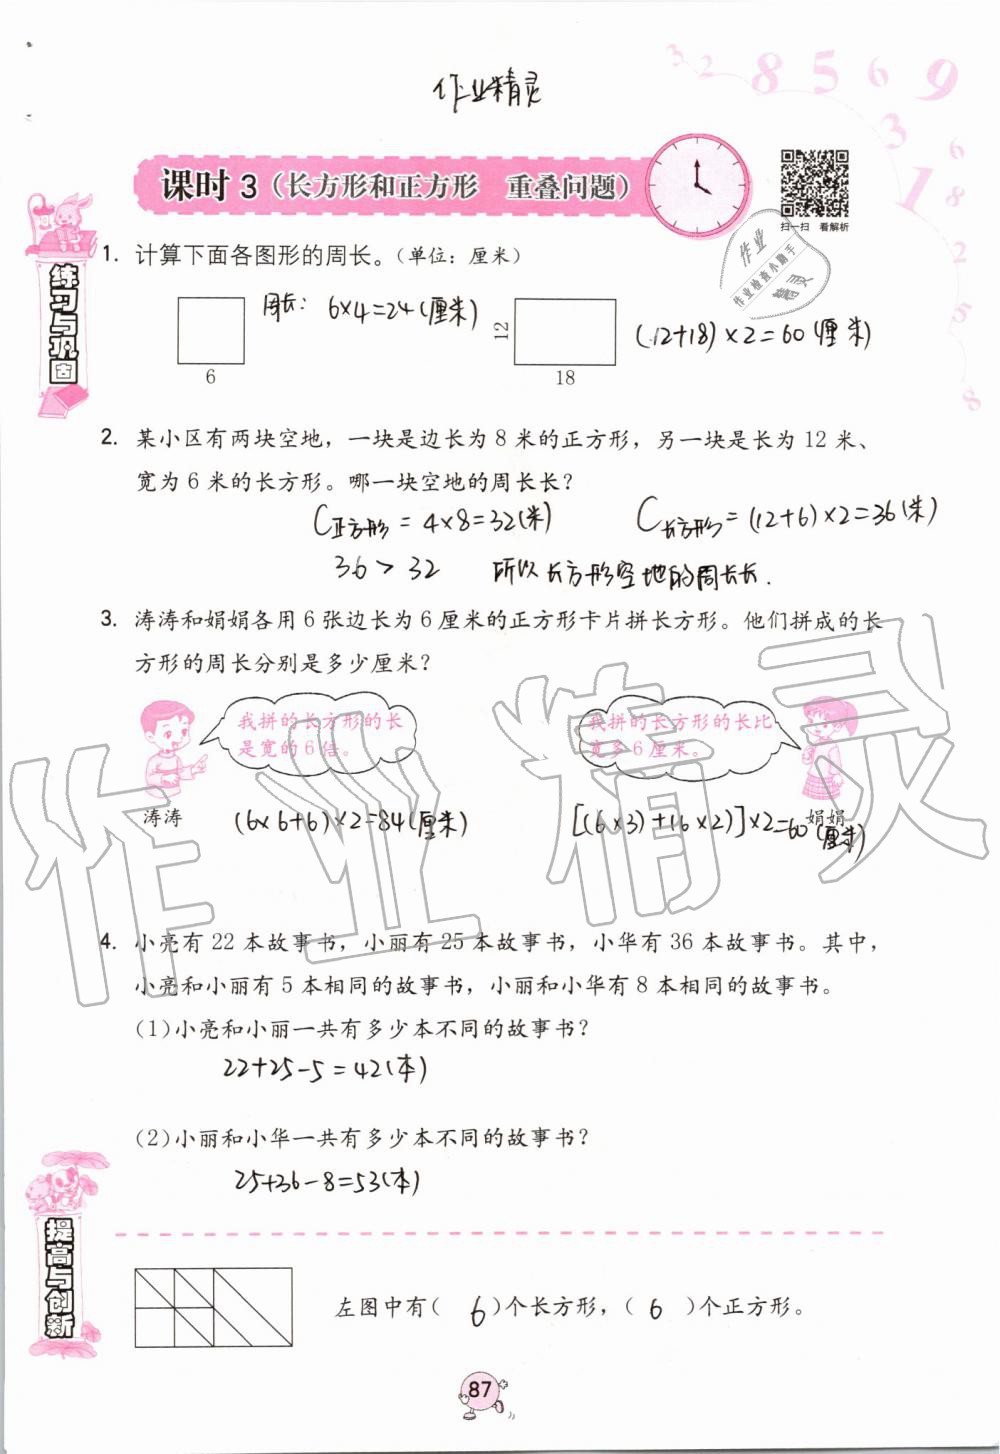 3 2 8 5 6 9
3
6
1 8
2
5
8
作业精灵
课时 3（长方形和正方形 重叠问题）
扫一扫 看解析
作业
作业检查小助手
精灵
练习与巩固
1. 计算下面各图形的周长。（单位：厘米）
周长： 6×4=24(厘米)
6
12
18
(12+18)×2=60(厘米)
2. 某小区有两块空地，一块是边长为 8 米的正方形，另一块是长为 12 米、
宽为 6 米的长方形。哪一块空地的周长长？
C正方形=4×8=32(米)
C长方形=(12+6)×2=36(米)
36>32 所以长方形空地的周长长.
3. 涛涛和娟娟各用 6 张边长为 6 厘米的正方形卡片拼长方形。他们拼成的长
方形的周长分别是多少厘米？
我拼的长方形的长
是宽的 6 倍。
我拼的长方形的长比
宽多 6 厘米。
涛涛
(6×6+6)×2=84(厘米)
[(6×3)+(6×2)]×2=60(厘米)
娟娟
作业精灵
4. 小亮有 22 本故事书，小丽有 25 本故事书，小华有 36 本故事书。其中，
小亮和小丽有 5 本相同的故事书，小丽和小华有 8 本相同的故事书。
(1)小亮和小丽一共有多少本不同的故事书？
22+25-5=42(本)
(2)小丽和小华一共有多少本不同的故事书？
25+36-8=53(本)
提高与创新
左图中有( 6 )个长方形，( 6 )个正方形。
87